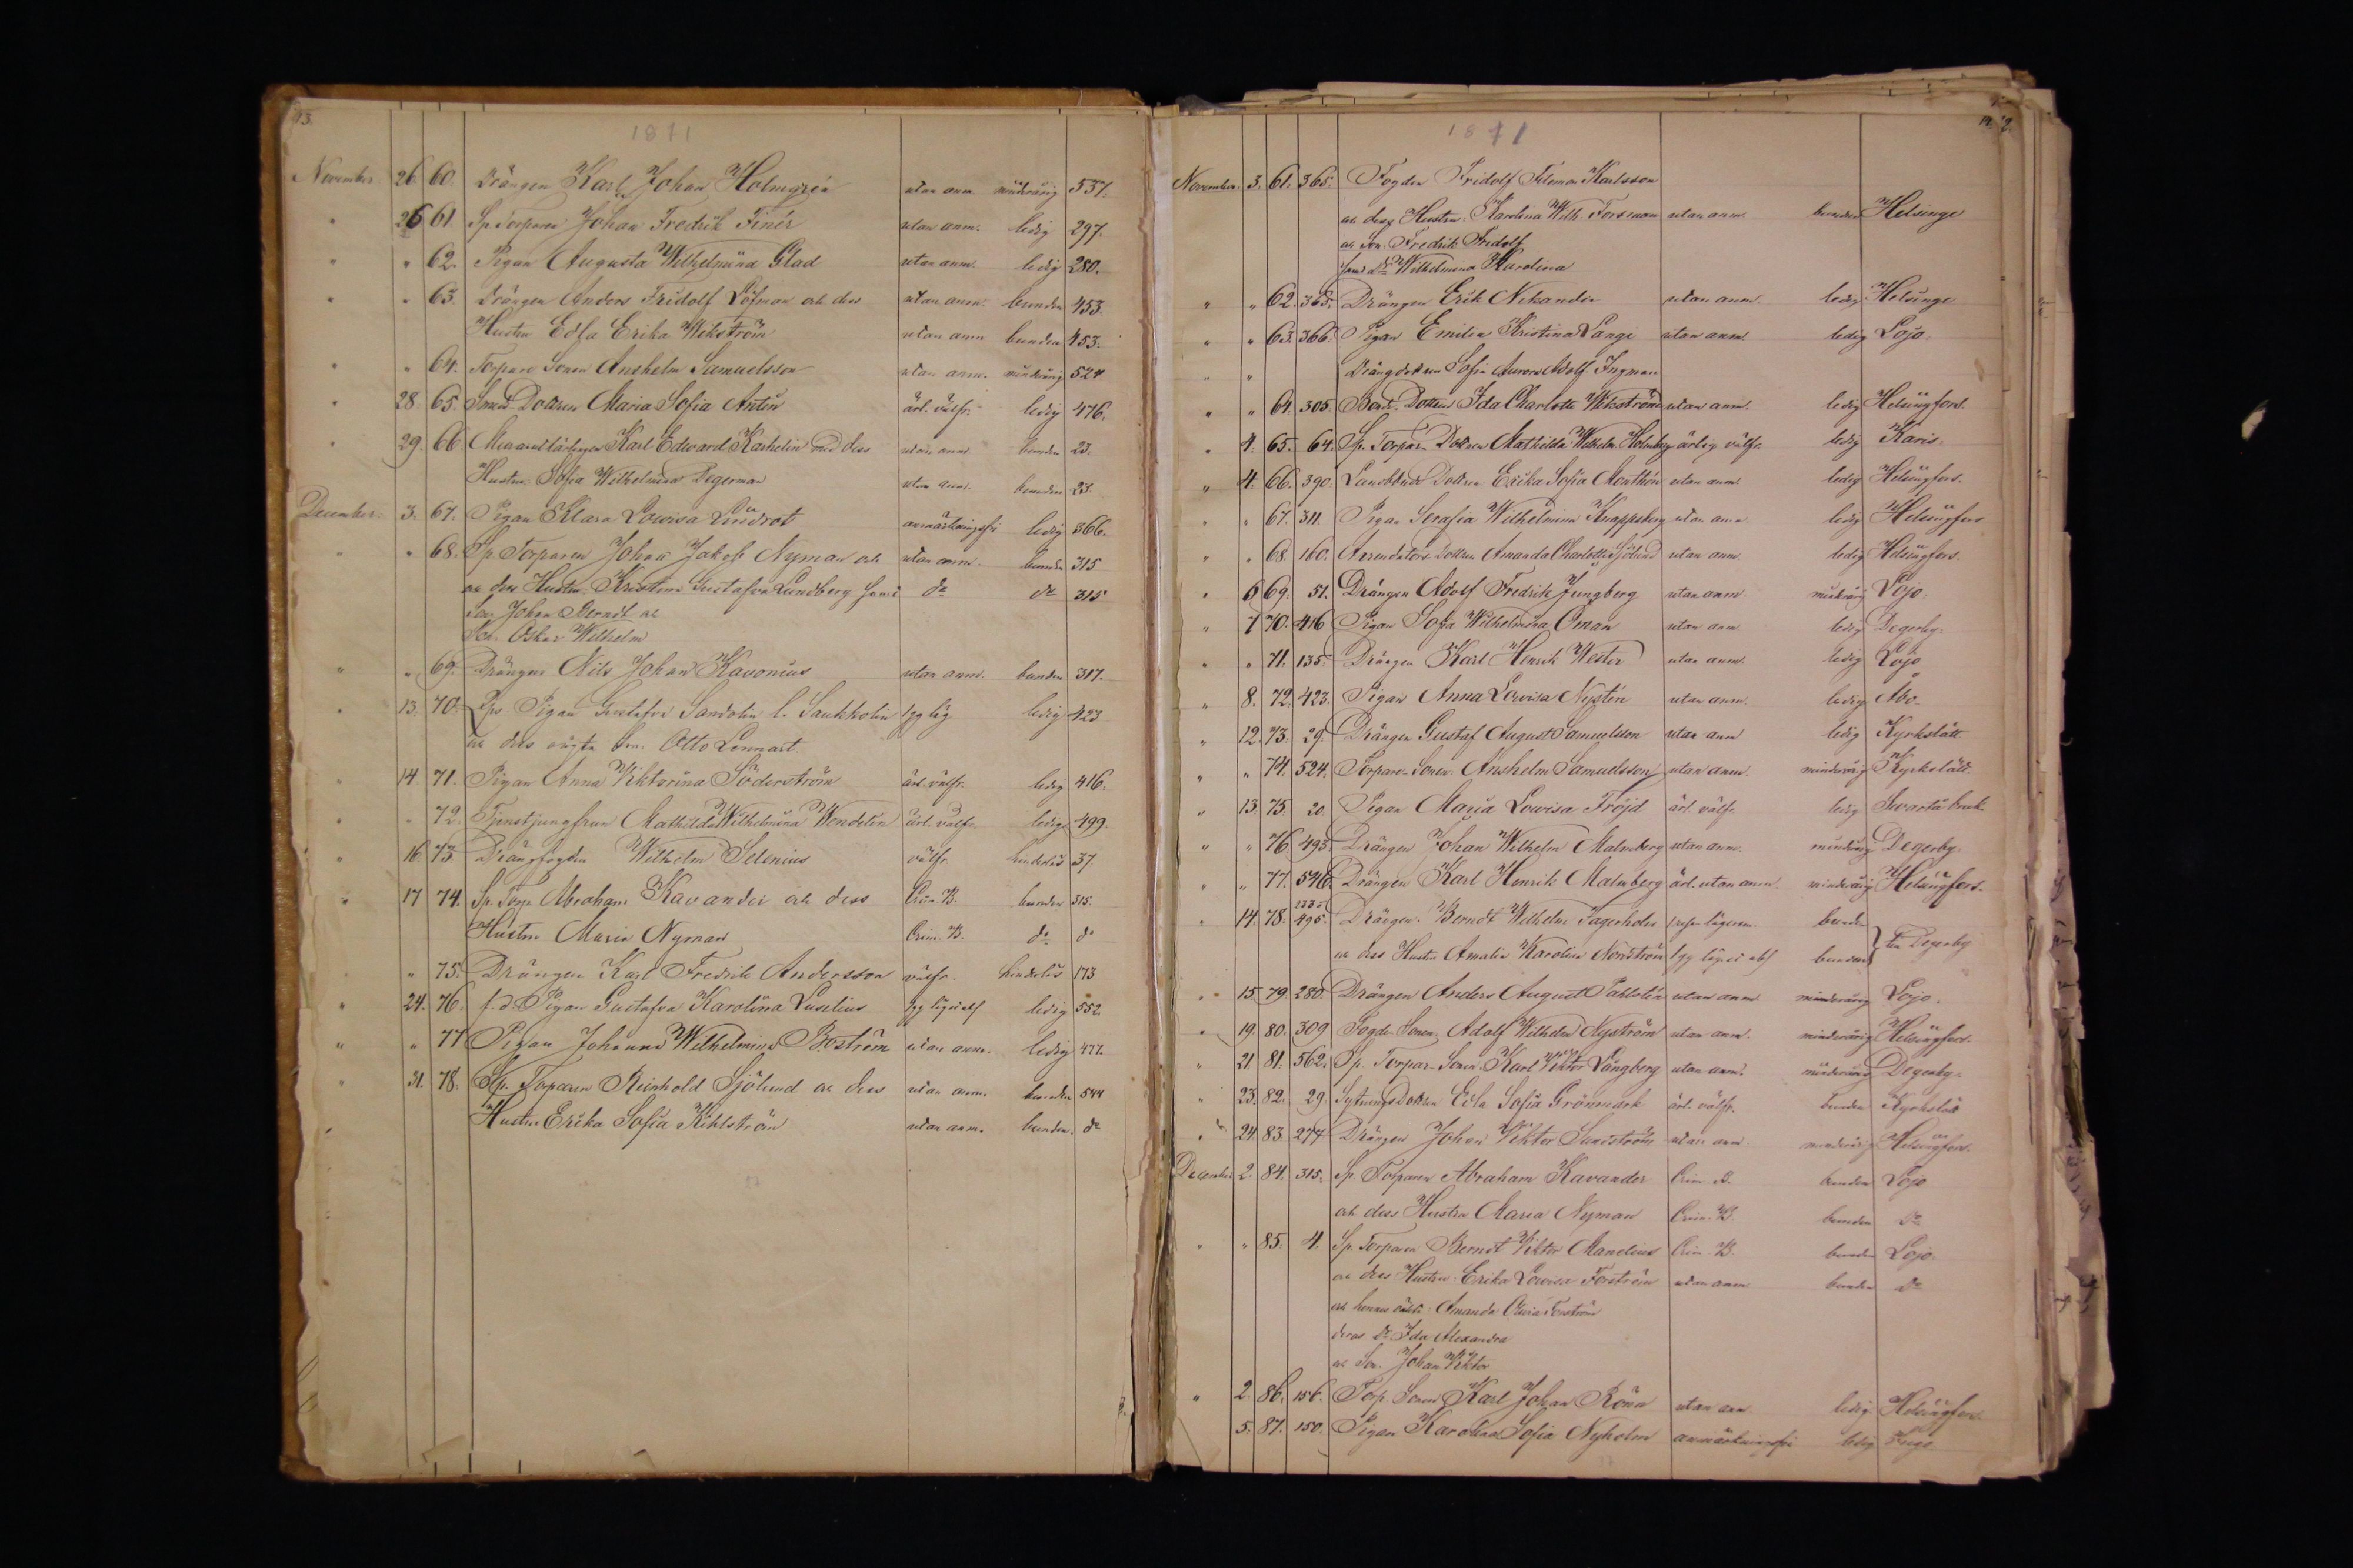 13.
1871
November. 26 60. Drängen Karl Johan Holmgrén utan anm. minderårig 537.
" 26 61. Sp. Torparen Johan Fredrik Finér utan anm. ledig 297.
" " 62. Pigan Augusta Wilhelmina Glad utan anm. ledig 280.
" " 63. Drängen Anders Fridolf Löfman och dess utan anm. bunden 453.
Hustru Edla Erika Wikström utan anm bunden 453.
" " 64. Torpare Sonen Anshelm Samuelsson utan anm. minderårig 524
" 28 65. Smed Dottren Maria Sofia Antin ärl. välfr. ledig 476.
" 29. 66. Karl Edward Karhelin med dess utan anm. bunden 23.
Hustru Sofia Wilhelmina Degerman utan anm. bunden 23.
December. 3. 67. Pigan Klara Lowisa Lindrot anmärkningsfri ledig 366.
" " 68. Sp. Torparen Johan Jakob Nyman och utan anm. bunden 315
och dess Hustru Kristina Gustafva Lundberg samt do do 315
Son Johan Berndt och
Son Oskar Wilhelm
" " 69. Drängen Nils Johan Kavonius utan anm. bunden 317.
" 13. 70. Pigan Gustafva Sandolin l. Saukkolin ledig 423
och dess oägta son Otto Lennart.
" 14 71. Pigan Anna Viktorina Söderström ärl. välfr. ledig 416.
" " 72. Tjenstjungfrun Mathilda Wilhelmina Wendelin ärl. välfr. ledig 499.
" 16 73 Drängfogden Wilhelm Selenius välfr. hinderlös 37.
" 17 74. Sp. Torp. Abraham Kavander och dess Crim. B. bunden 315.
Hustru Maria Nyman Crim. B. do do
" 75. Drängen Karl Fredrik Andersson välfr. hinderlös 173
" 24. 76. f.d. Pigan Gustafva Karolina Luselius ledig 552.
" " 77 Pigan Johanna Wilhelmina Boström utan anm. ledig 477.
" 31. 78. Sp. Torparen Reinhold Sjölund och dess utan anm. bunden 544
Hustru Erika Sofia Kihlström utan anm. bunden. do
14
1871
November. 3. 61. 365. Fogden Fridolf Filemon Karlsson
och dess Hustru Karolina Wilh. Forsman utan anm. bunden Helsinge
och Son Fredrik Fridolf
samt do Wilhelmina Karolina
" " 62. 365. Drängen Erik Nikander utan anm. ledig Helsinge
" " 63. 366. Pigan Emilia Kristina Lange utan anm. ledig Lojo.
" " Drängdottren Sofia Aurora Adolf. Ingman
" " 64. 305. Bond. Dottren Ida Charlotta Wikström utan anm. ledig Helsingfors.
" 4. 65. 64. Sp. Torpare Dottren Mathilda Wilhelm. Holmberg ärlig välfr. ledig Karis.
" 4. 66. 390. Landbonde Dottren Erika Sofia Monthén utan anm. ledig Helsingfors.
" " 67. 311. Pigan Serafia Wilhelmina Knappsberg utan anm. ledig Helsingfors
" " 68. 160. Arrendators Dottren Amanda Charlotta Sjölund utan anm. ledig Helsingfors.
" 6 69. 51. Drängen Adolf Fredrik Jungberg utan anm. minderårig Lojo.
" 7 70. 416 Pigan Sofia Wilhelmina Öman utan anm. ledig Degerby.
" " 71. 135. Drängen Karl Henrik Wester utan anm. ledig Lojo
" 8. 72. 423. Pigan Anna Lowisa Nystén utan anm. ledig Åbo.
" 12. 73. 29. Drängen Gustaf August Samuelsson utan anm ledig Kyrkslätt
" " 74. 524. Torpare Sonen Anshelm Samuelsson utan anm. minderårig Kyrkslätt.
" 13. 75. 20. Pigan Maria Lowisa Fröjd ärl. välfr. ledig Swartå bruk.
" " 76. 493. Drängen Johan Wilhelm Malmberg utan anm. minderårig Degerby.
" " 77. 546. Drängen Karl Henrik Malmberg ärl. utan anm. minderårig Helsingfors.
" 14. 78. 495. Drängen Berndt Wilhelm Fagerholm bunden
och dess Hustru Amalia Karolina Nordström bunden } Degerby
" 15. 79. 280. Drängen Anders August Pahlstén utan anm. minderårig Lojo.
" 19. 80. 309 Fogde Sonen Adolf Wilhelm Nyström utan anm. minderårig Helsingfors.
" 21. 81. 562. Sp. Torpar. Sonen Karl Viktor Långberg utan anm. minderårig Degerby.
" 23. 82. 29 Sytnings Dottren Edla Sofia Grönmark ärl. välfr. bunden Kyrkslätt
" 24. 83. 274 Drängen Johan Viktor Sundström utan anm minderårig Helsingfors.
December 2. 84. 315. Sp. Torparen Abraham Kavander Crim. B. bunden Lojo
och dess Hustru Maria Nyman Crim. B. bunden do
" " 85. 4. Sp. Torparen Berndt Viktor Manelius Crim. B. bunden Lojo.
och dess Hustru Erika Lowisa Forström utan anm bunden do
och hennes oäkta Amanda Olivia Forström
deras do Ida Alexandra
och Son Johan Viktor
" 2. 86. 156. Torp. Sonen Karl Johan Rönn utan anm ledig Helsingfors.
5. 87. 150. Pigan Karolina Sofia Nyholm anmärkningsfri ledig Ingo